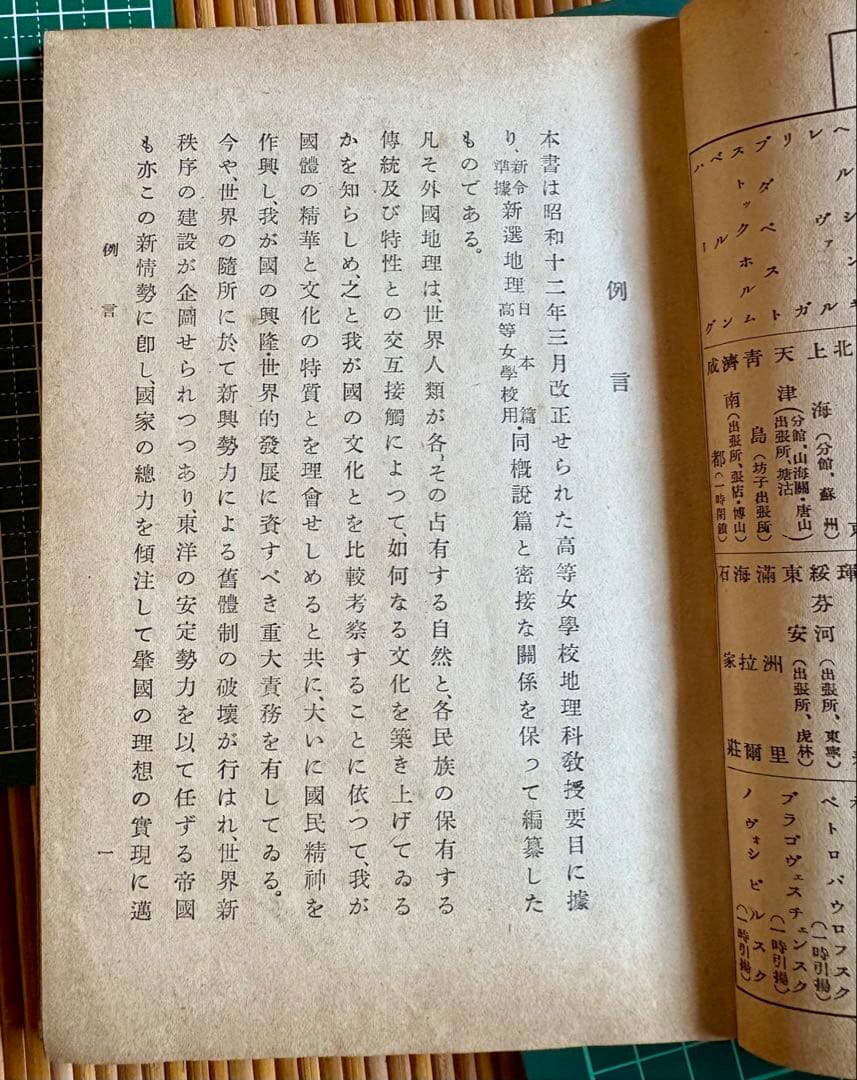 ヘルシンキ
レヴァル
リガ
ブダペスト
ストックホルム
ベルン
ハーグ
北
上海(分館、蘇州)
天津(分館、山海關・唐山 出張所、塘沽)
青島(坊子出張所)
濟南(出張所、張店・博山)
成都(一時閉鎖)
琿
綏芬河(出張所、東寧)
東安(出張所、虎林)
滿洲里
海拉爾
石家莊
ペトロパウロフスク(一時引揚)
ブラゴヴェスチェンスク(一時引揚)
ノヴォシビルスク(一時引揚)
例言
本書は昭和十二年三月改正せられた高等女學校地理科敎授要目に據
り、新令準據新選地理日本篇高等女學校用・同槪說篇と密接な關係を保つて編纂した
ものである。
凡そ外國地理は、世界人類が各〻その占有する自然と、各民族の保有する
傳統及び特性との交互接觸によつて、如何なる文化を築き上げてゐる
かを知らしめ、之と我が國の文化とを比較考察することに依つて、我が
國體の精華と文化の特質とを理會せしめると共に、大いに國民精神を
作興し、我が國の興隆・世界的發展に資すべき重大責務を有してゐる。
今や、世界の隨所に於て新興勢力による舊體制の破壞が行はれ、世界新
秩序の建設が企圖せられつつあり、東洋の安定勢力を以て任ずる帝國
も亦この新情勢に卽し、國家の總力を傾注して肇國の理想の實現に邁
例言 一